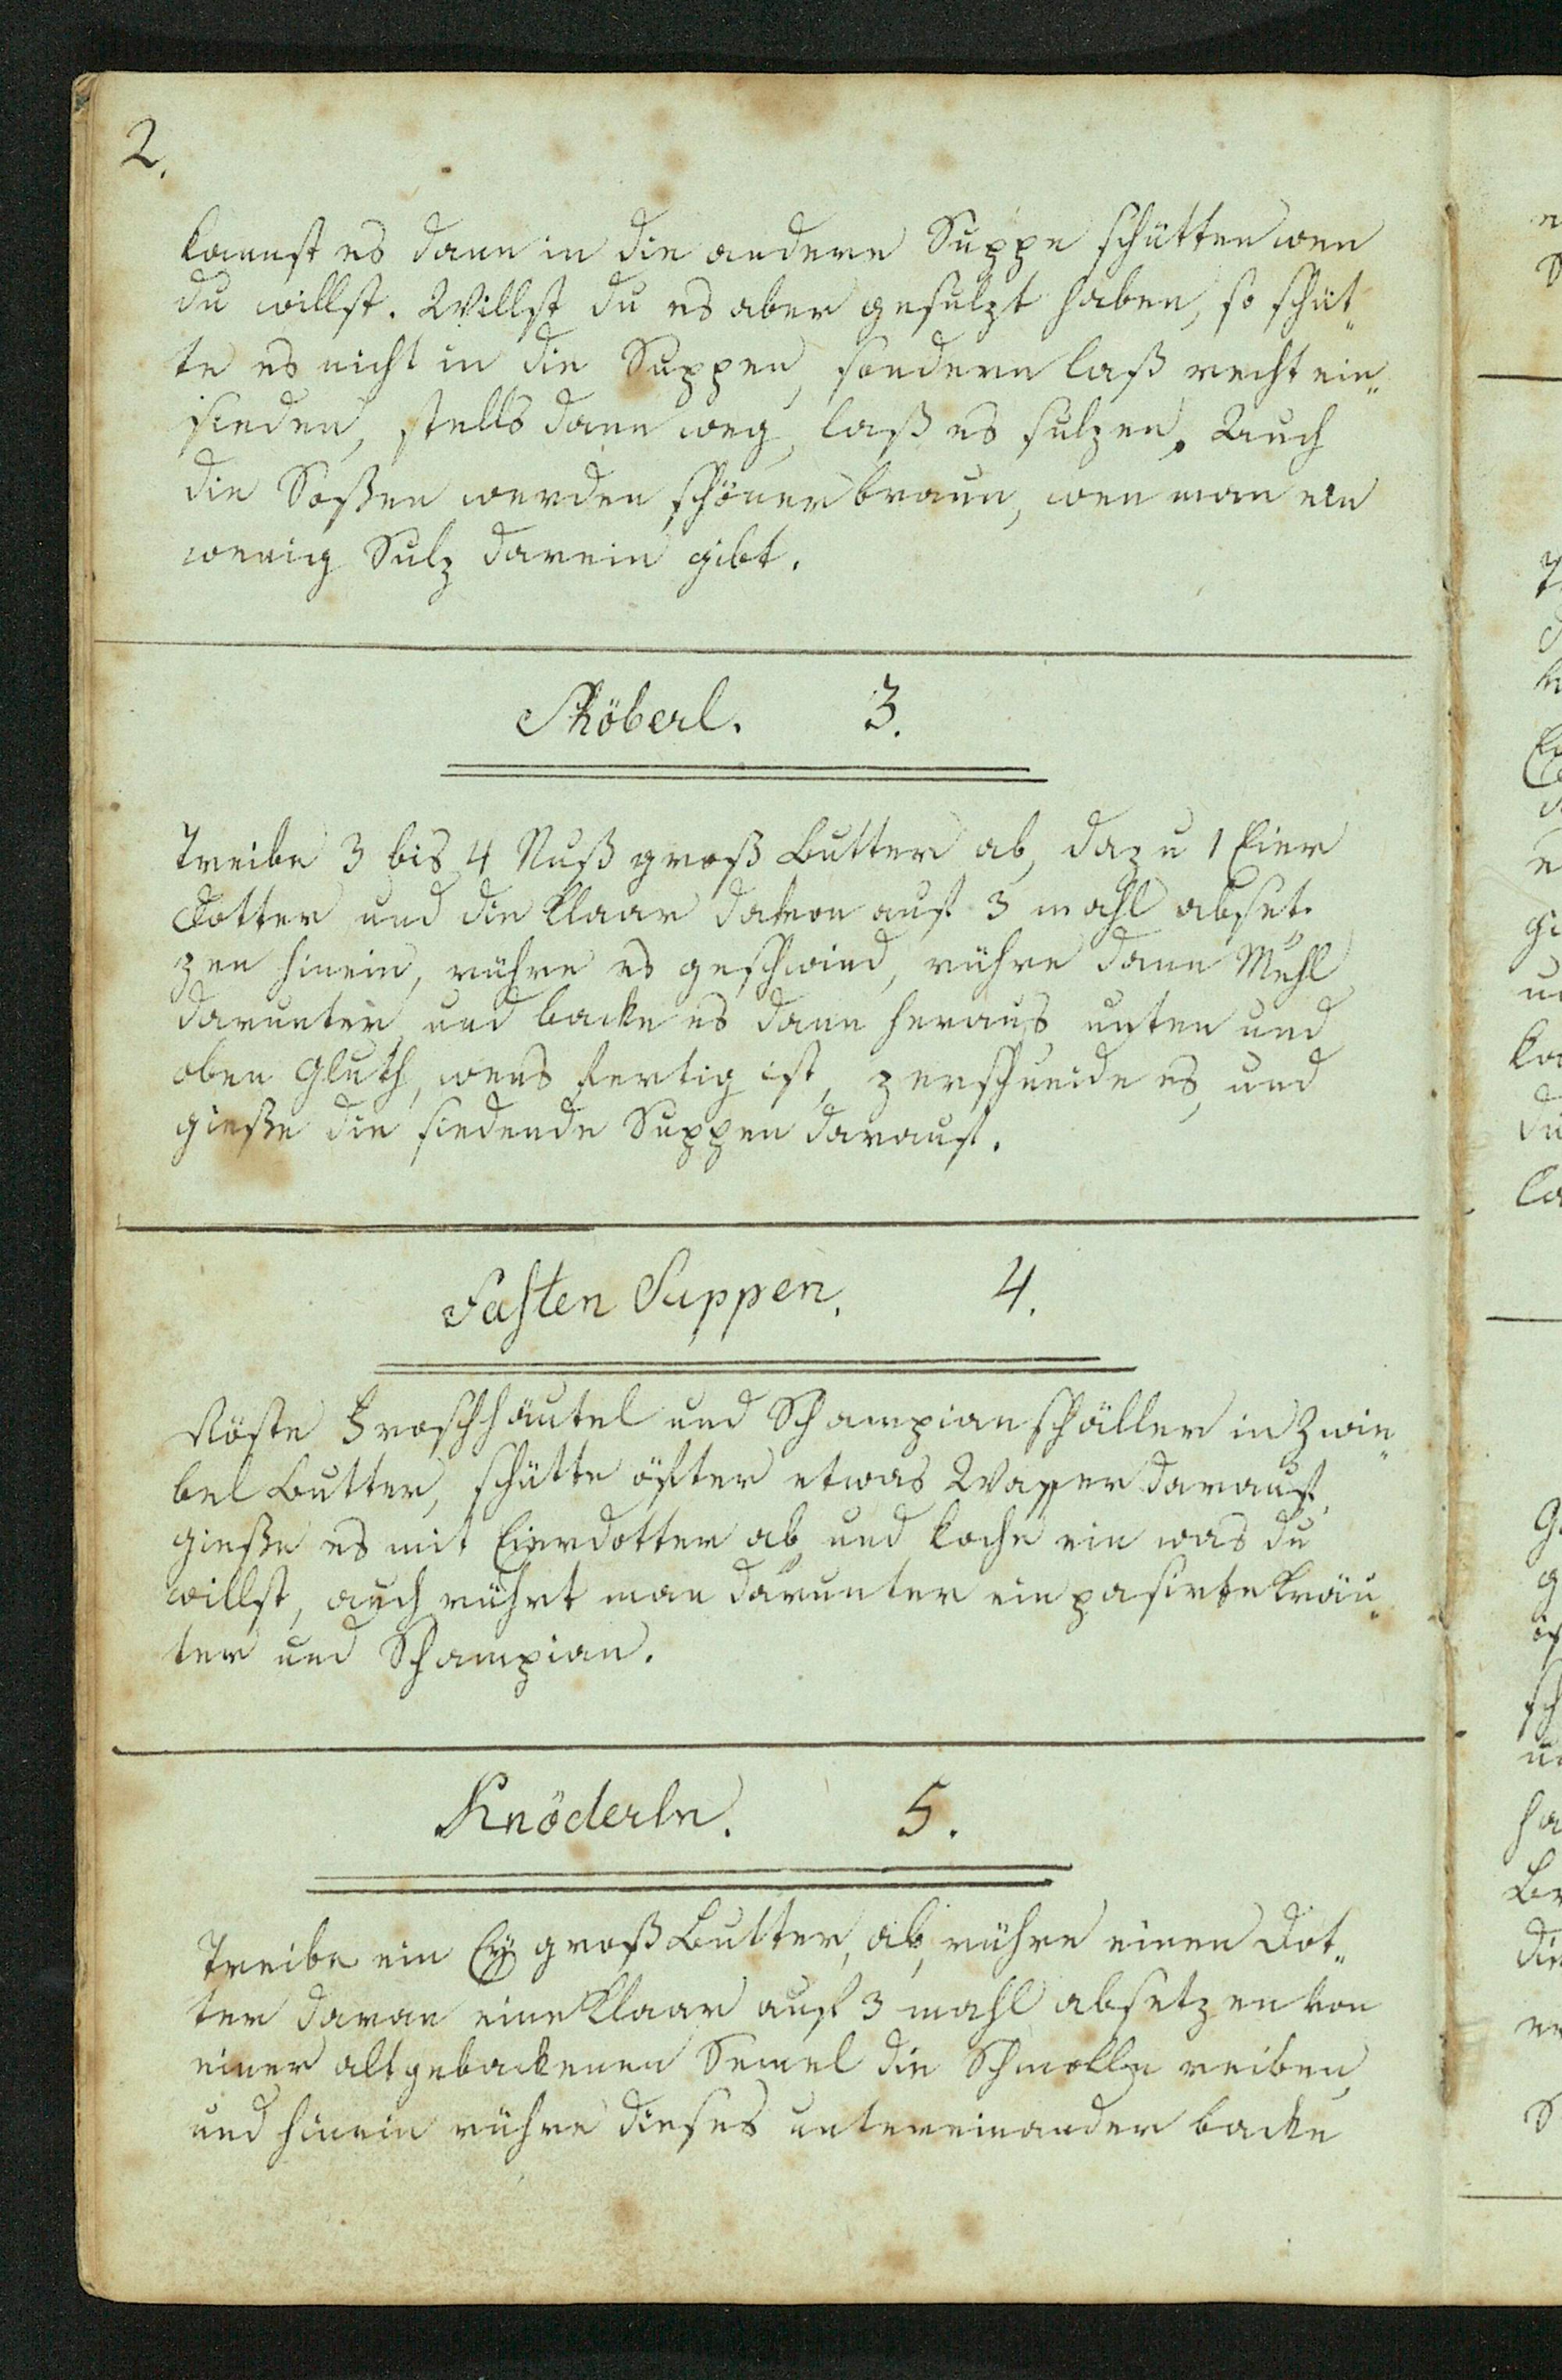 2.
kannst es dann in die andere Suppe schütten wen
du willst. Willst du es aber gesulzt haben, so schüt„
te es nicht in die Suppen, sondern laß recht ein„
sieden, stells dann weg, laß es sulzen. Auch
die Soßen werden schöner braun, wen man ein
wenig Sulz darein gibt.
Schöberl. 3.
Treibe 3 bis 4 Nuß groß Butter ab, dazu 1 Eier
dotter und die Klaar davon auf 3 mahl abset„
zen hinein, rühre es geschwind, rühre dann Mehl
darunter, und backe es dann heraus unten und
oben Gluth, wens fertig ist, zerschneide es, und
gieße die siedende Suppen darauf.
Fasten Suppen. 4.
Röste Froschhäutel und Schampianschäller in Zwie„
bel Butter, schütte öfter etwas Wasser darauf,
gieße es mit Eierdotter ab, und koche ein was du
willst, auch rührt man darunter ein pasirte Kräu„
ter und Schampian.
Knöderln. 5.
Treibe ein Ey groß Butter, ab, rühre einen Dot„
ter daran eine Klaar auf 3 mahl absetzen von
einer altgebackenen Semel die Schmolln reiben,
und hinein rühre dieses untereinander backe